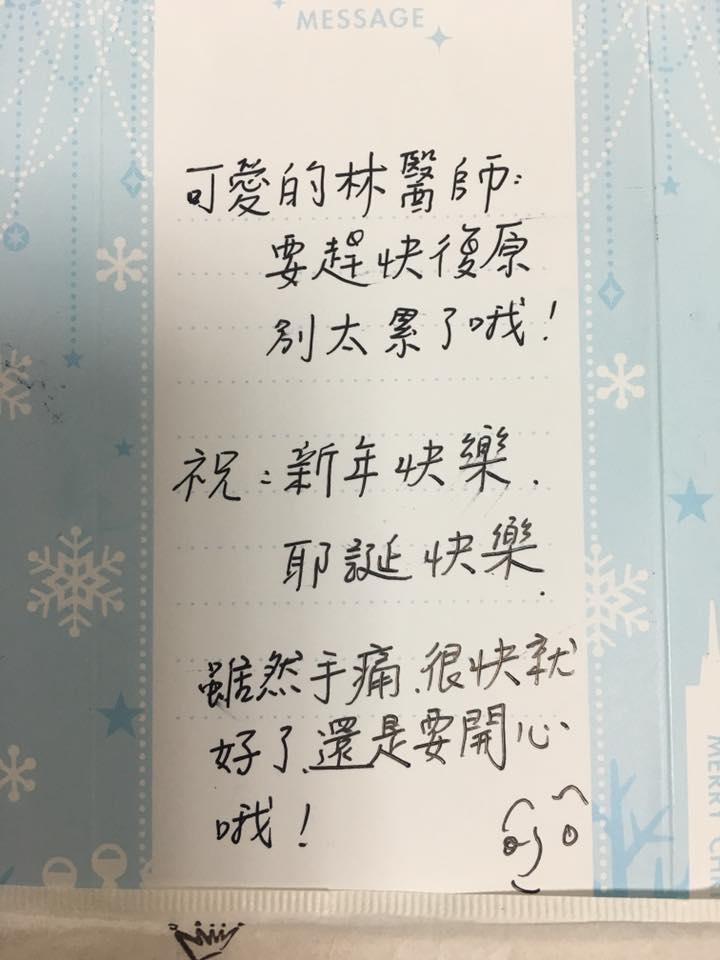 MESSAGE
可愛的林醫師：
要趕快復原
別太累了哦！
祝：新年快樂．
耶誕快樂．
雖然手痛．很快就
好了．還是要開心
哦！
MERRY CH